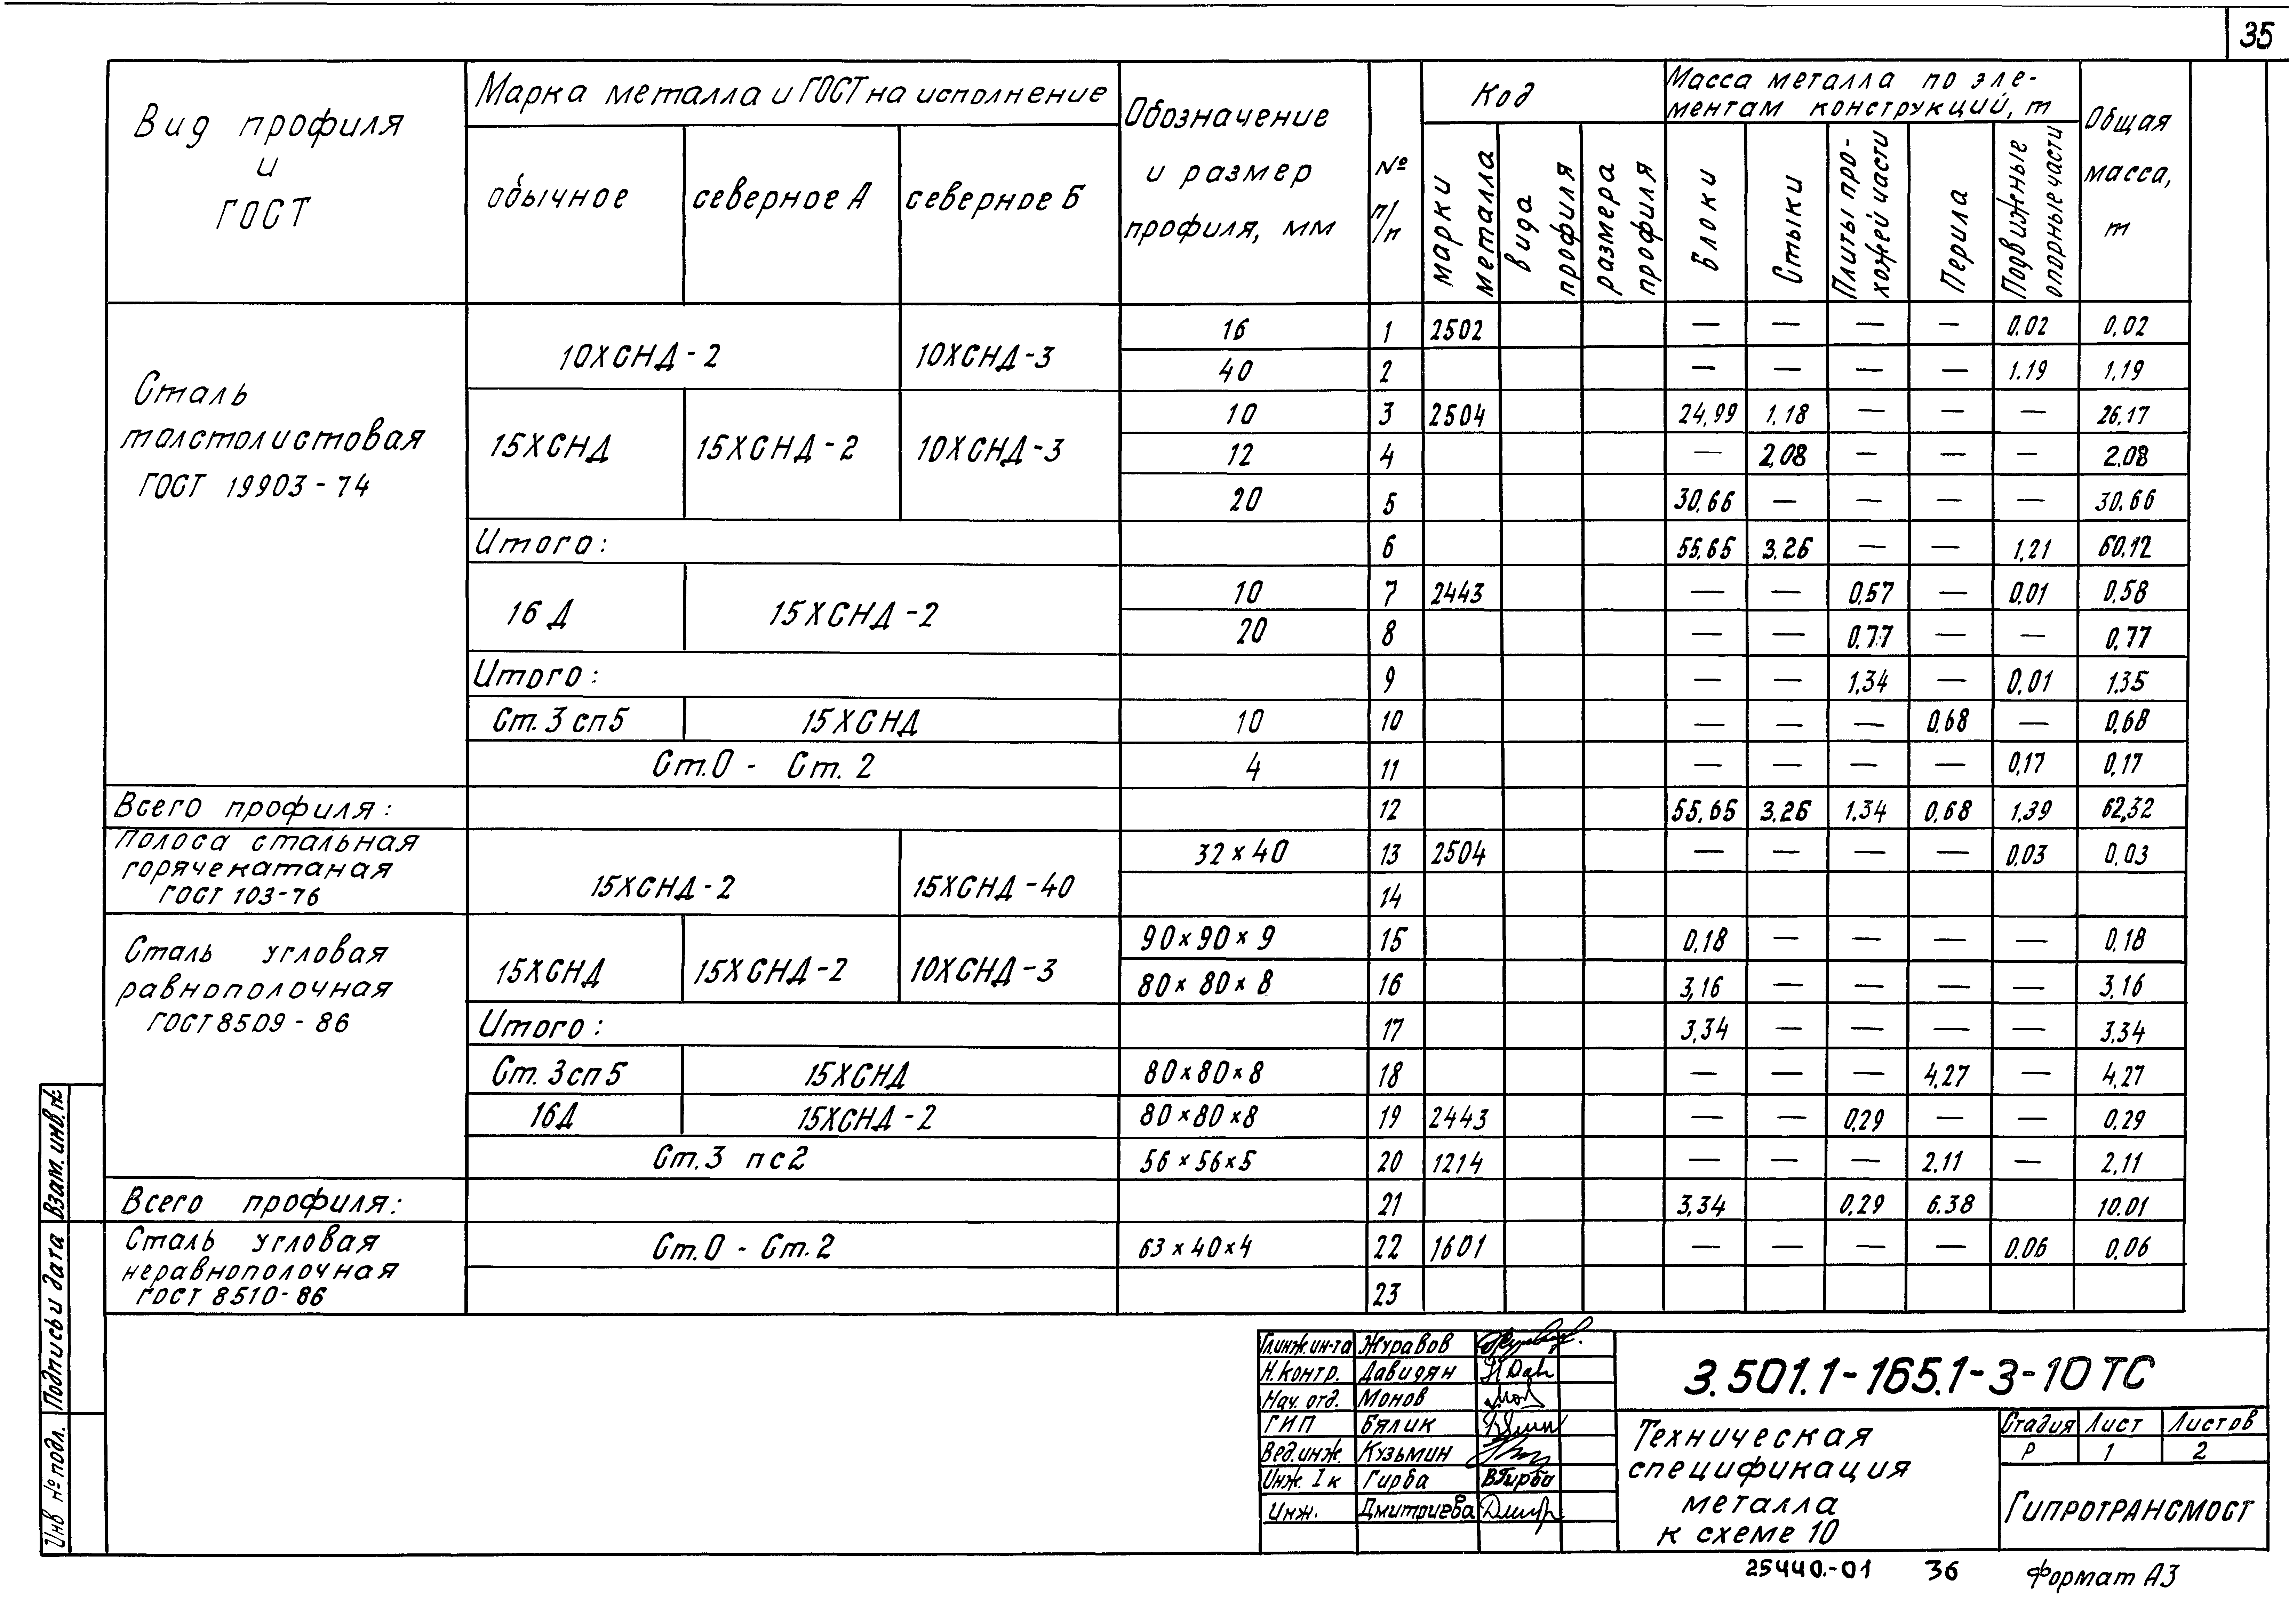 35
Вид профиля и ГОСТ
Марка металла и ГОСТ на исполнение
обычное
северное А
северное Б
Обозначение и размер профиля, мм
№ п/п
Код
марки металла
вида профиля
размера профиля
Масса металла по эле-
ментам конструкций, т
Блоки
Стыки
Плиты про-
хожей части
Перила
Подвижные опорные части
Общая масса, т
Сталь
толстолистовая
ГОСТ 19903-74
10ХСНД-2 10ХСНД-3
16 1 2502 — — — — 0.02 0,02
40 2 — — — — 1.19 1,19
15ХСНД 15ХСНД-2 10ХСНД-3
10 3 2504 24,99 1,18 — — — 26,17
12 4 — 2,08 — — — 2.08
20 5 30,66 — — — — 30,66
Итого: 6 55,65 3.26 — — 1,21 60,12
16Д 15ХСНД-2
10 7 2443 — — 0,57 — 0,01 0,58
20 8 — — 0,77 — — 0,77
Итого: 9 — — 1,34 — 0,01 1.35
Ст.3сп5 15ХСНД 10 10 — — — 0,68 — 0,68
Ст.0 - Ст.2 4 11 — — — — 0,17 0,17
Всего профиля: 12 55,65 3.26 1,34 0,68 1.39 62,32
Полоса стальная
горячекатаная
ГОСТ 103-76
15ХСНД-2 15ХСНД-40
32×40 13 2504 — — — — 0,03 0,03
14
Сталь угловая
равнополочная
ГОСТ 8509-86
15ХСНД 15ХСНД-2 10ХСНД-3
90×90×9 15 0,18 — — — — 0,18
80×80×8 16 3,16 — — — — 3,16
Итого: 17 3,34 — — — — 3,34
Ст.3сп5 15ХСНД 80×80×8 18 — — — 4,27 — 4,27
16Д 15ХСНД-2 80×80×8 19 2443 — — 0,29 — — 0,29
Ст.3 пс2 56×56×5 20 1214 — — — 2.11 — 2,11
Всего профиля: 21 3,34 0,29 6.38 10.01
Сталь угловая
неравнополочная
ГОСТ 8510-86
Ст.0 - Ст.2 63×40×4 22 1601 — — — — 0.06 0,06
23
Взам. инв. №
Подпись и дата
Инв № подл.
Гл.инж.ин-та Журавов
Н.контр. Давидян
Нач. отд. Монов
ГИП Бялик
Вед.инж. Кузьмин
Инж. I к Гирба ВГирба
Инж. Дмитриева
3.501.1-165.1-3-10ТС
Техническая
спецификация
металла
к схеме 10
Стадия Лист Листов
Р 1 2
ГИПРОТРАНСМОСТ
25440.-01 36 Формат А3